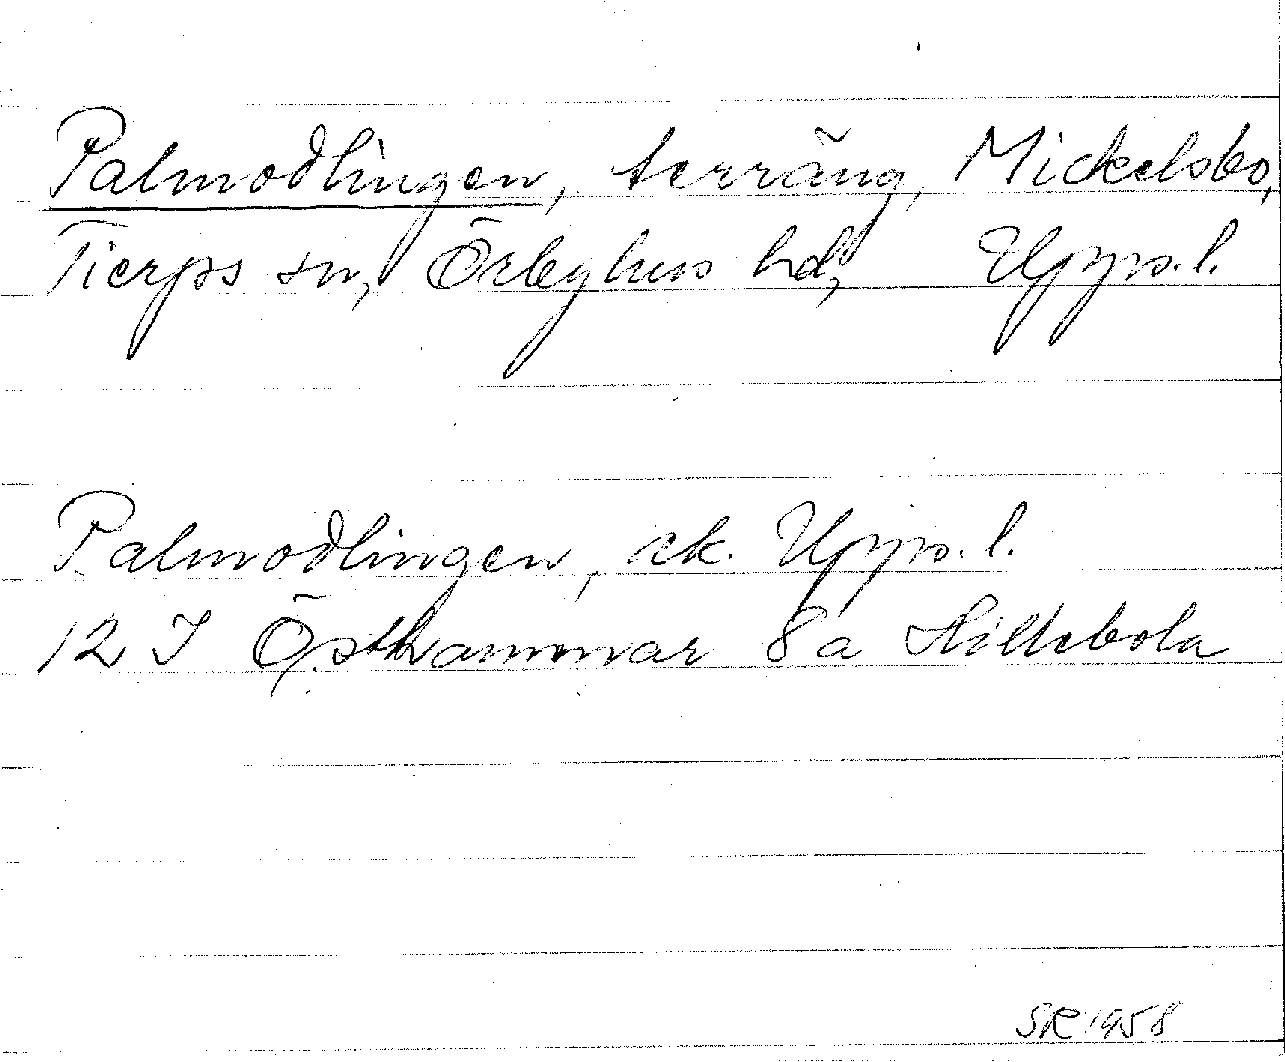 Palmodlingen, terräng, Mickelsbo,
Tierps sn, Örbyhus hd, Upps. l.
Palmodlingen, ek. Upps. l.
12 I Östhammar 8 a Hillebola
SR 1958